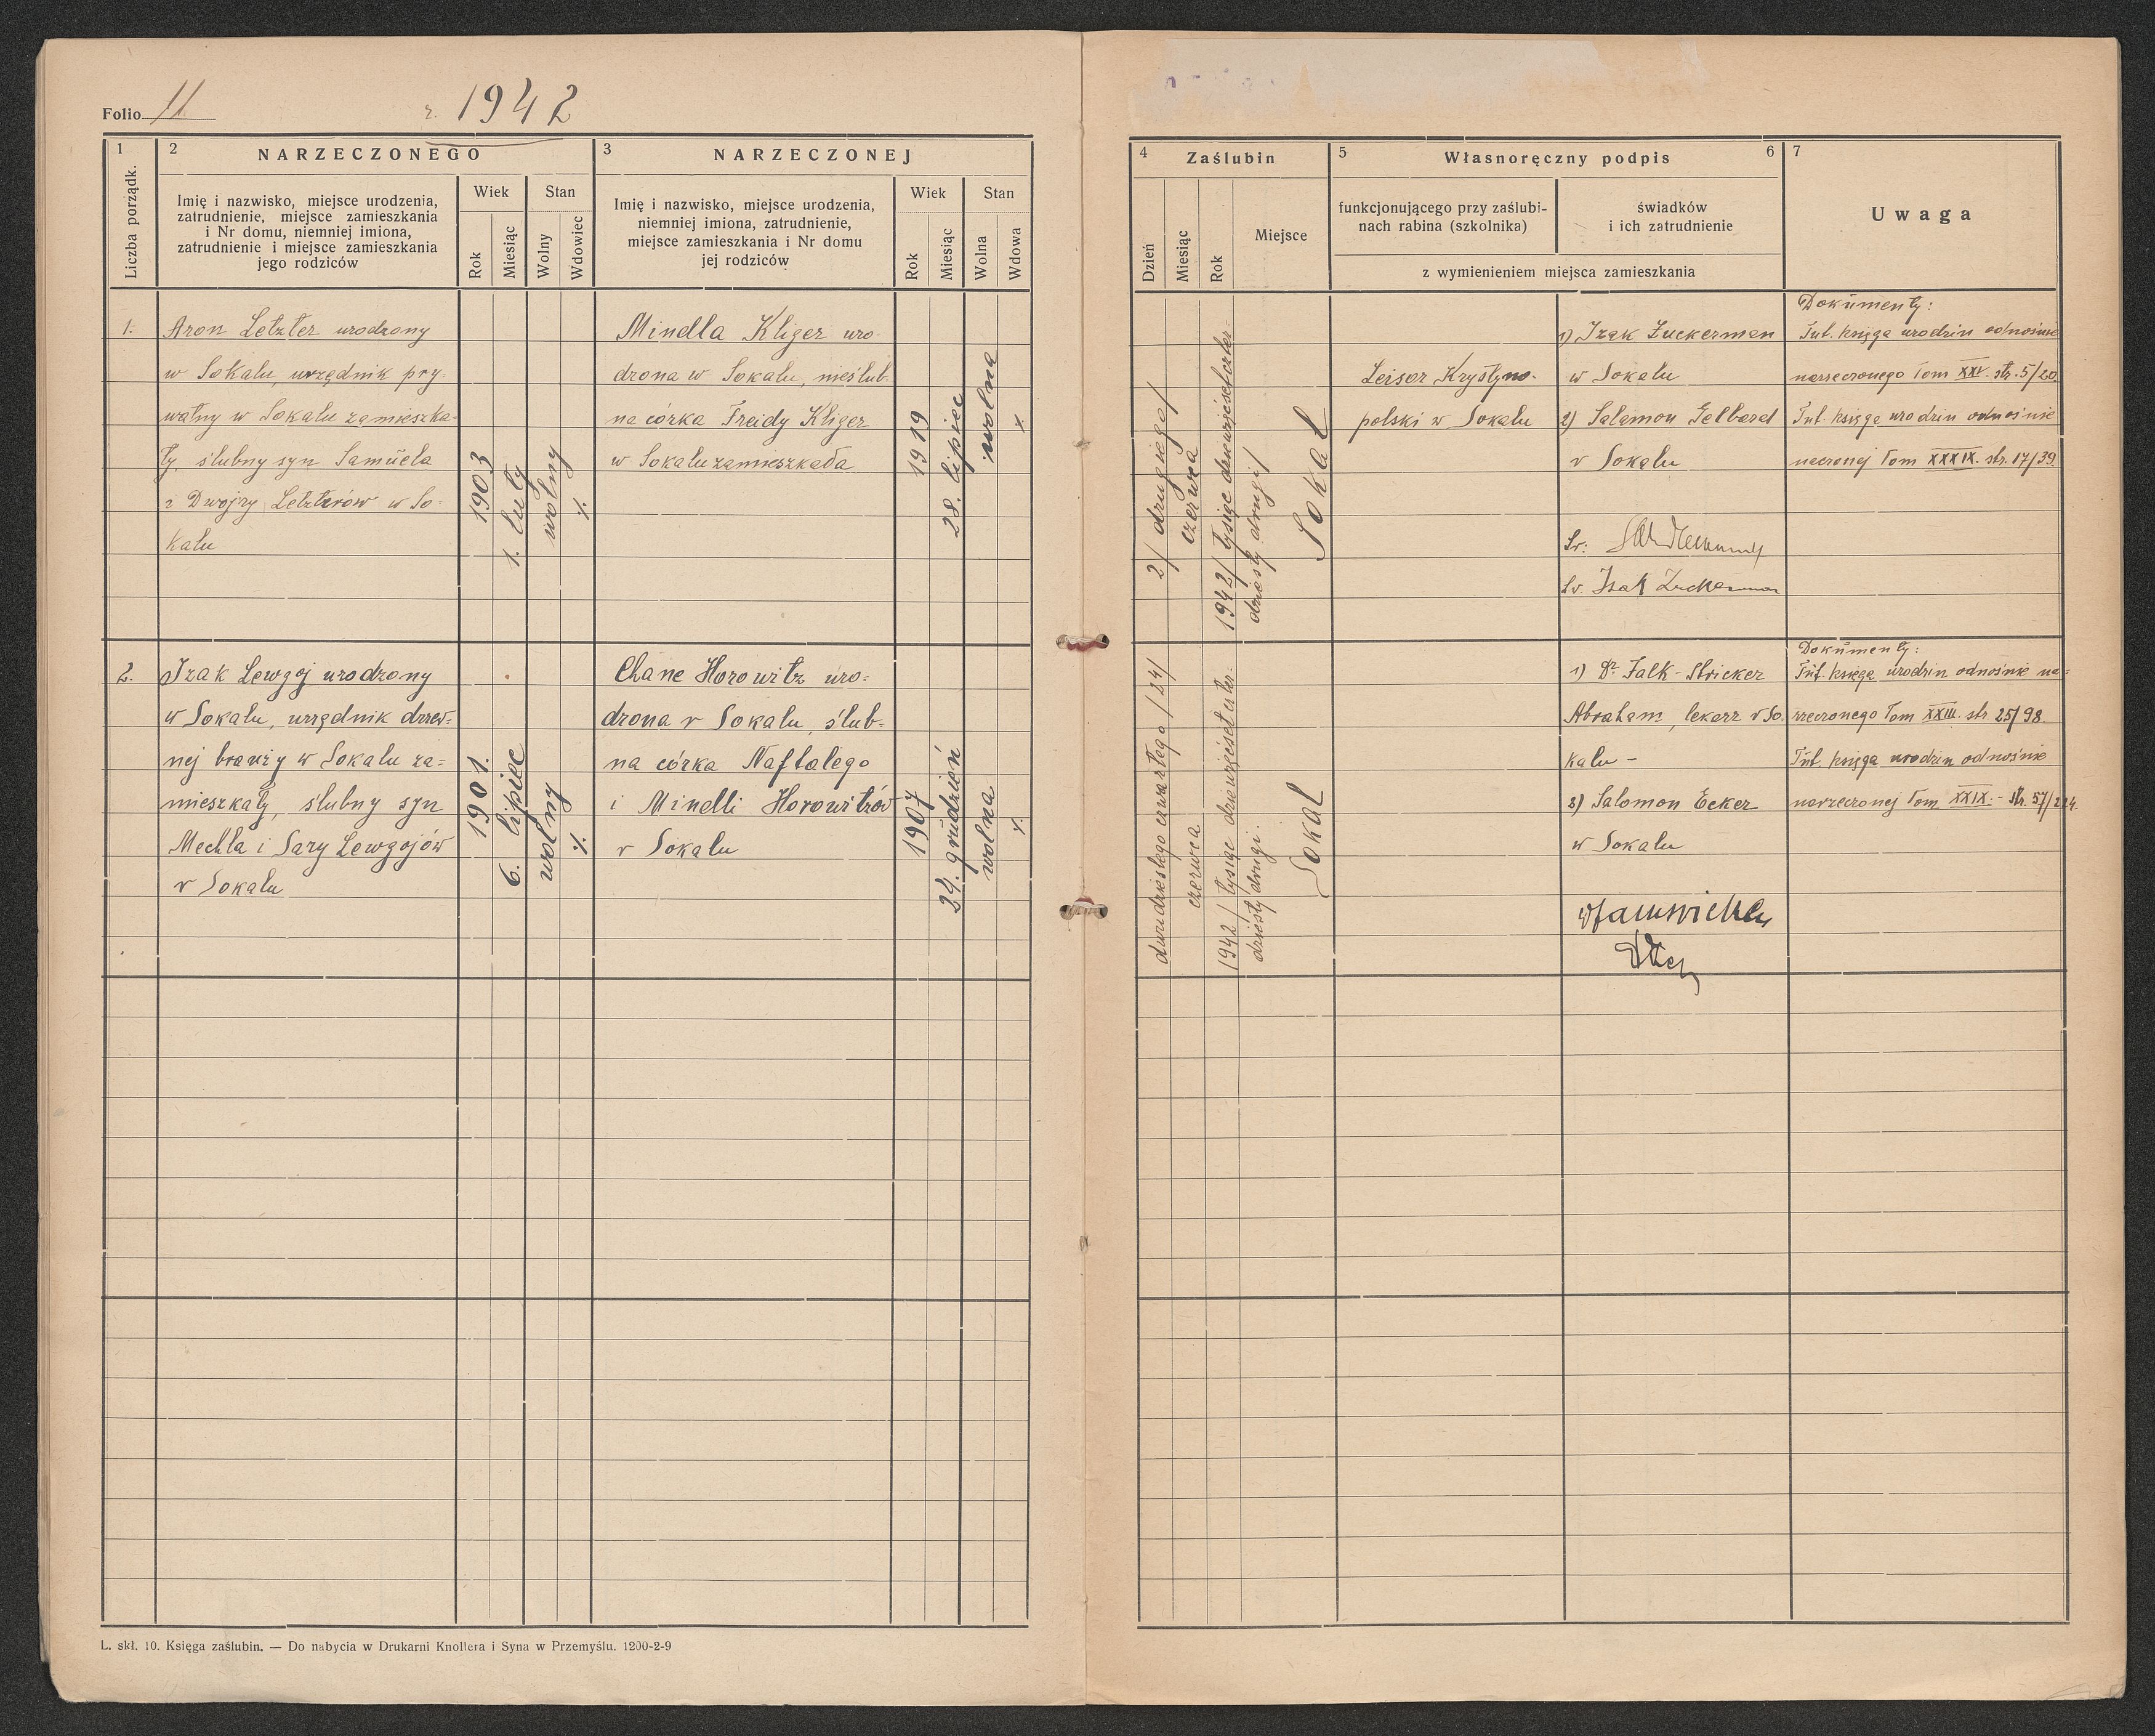 Folio 11
r. 1942
1
2
NARZECZONEGO
3
NARZECZONEJ
Liczba porządk.
Imię i nazwisko, miejsce urodzenia,
zatrudnienie, miejsce zamieszkania
i Nr domu, niemniej imiona,
zatrudnienie i miejsce zamieszkania
jego rodziców
Wiek
Stan
Rok
Miesiąc
Wolny
Wdowiec
Imię i nazwisko, miejsce urodzenia,
niemniej imiona, zatrudnienie,
miejsce zamieszkania i Nr domu
jej rodziców
Wiek
Stan
Rok
Miesiąc
Wolna
Wdowa
1.
Aron Letzter urodzony
w Sokalu, urzędnik pry-
watny w Sokalu zamieszka-
ły, ślubny syn Samuela
z Dwojry Letzterów w So-
kalu
1903
1. luty
wolny
%
Minella Kliger uro-
drona w Sokalu, nieślub-
na córka Freidy Kliger
w Sokalu zamieszkała
1919
28. lipiec
wolna
x
2.
Izak Lewgoj urodzony
w Sokalu, urzędnik drzew-
nej branży w Sokalu za=
mieszkały, ślubny syn
Mechla i Sary Lewgojów
w Sokalu
1901.
6. lipiec
wolny
%
Chane Horowitz uro=
drona w Sokalu, ślub-
na córka Naftalego
i Minelli Horowitzów
w Sokalu
1907
24. grudzień
wolna
%
L. skł. 10. Księga zaślubin. — Do nabycia w Drukarni Knollera i Syna w Przemyślu. 1200-2-9
4
Zaślubin
5
Własnoręczny podpis
6
7
Dzień
Miesiąc
Rok
Miejsce
funkcjonującego przy zaślubi-
nach rabina (szkolnika)
świadków
i ich zatrudnienie
z wymienieniem miejsca zamieszkania
Uwaga
2/ drugiego/
czerwca
1942/ tysiąc dziewięćsetczter-
dziesty drugi/
Sokal
Leisor Krystyno-
polski w Sokalu
1) Izak Zuckerman
w Sokalu
2) Salamon Gelbard
w Sokalu
Św:
Św. Izak Zuckerman
Dokumenty:
Tut. księga urodzin odnośnie
narzeczonego Tom XXV. str. 5/20
Tut. księga urodzin odnośnie
neczonej Tom XXXIX. str. 17/39
dwudziestego czwartego /24/
czerwca
1942/ tysiąc dziewięćsetczter-
dziesty drugi.
Sokal
1) Dr Falk-Stricker
Abraham, lekarz w So-
kalu -
2) Salomon Ecker
w Sokalu
Dokumenty:
Tut. księga urodzin odnośnie na-
rzeczonego Tom XXIII. str. 25/98
Tut. księga urodzin odnośnie
narzeczonej Tom XXIX. - Str. 57/224.